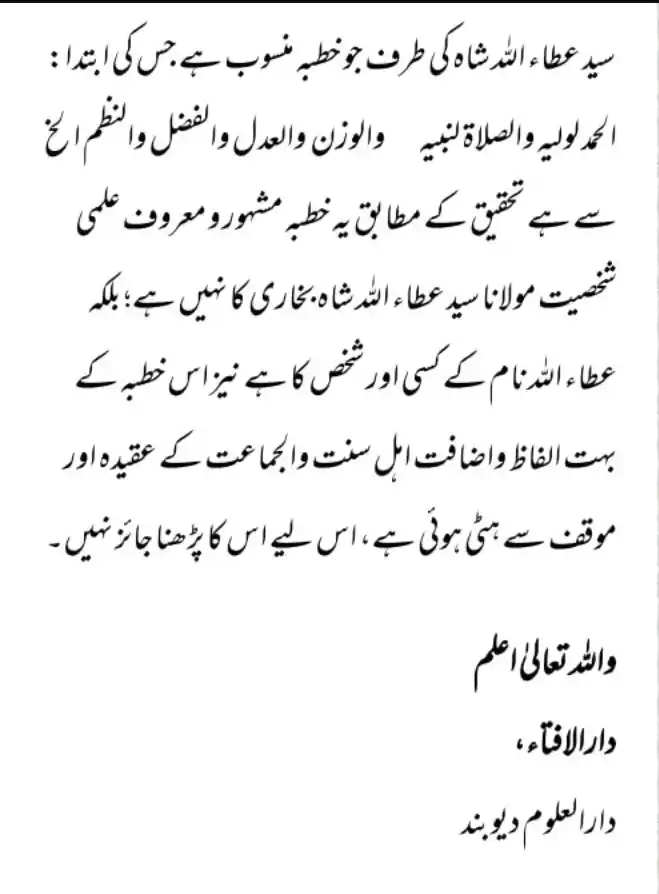 سید عطاء اللہ شاہ کی طرف جو خطبہ منسوب ہے جس کی ابتدا :
الحمد لولیہ والصلاۃ لنبیہ والوزن والعدل والفضل والنظم الخ
سے ہے تحقیق کے مطابق یہ خطبہ مشہور و معروف علمی
شخصیت مولانا سید عطاء اللہ شاہ بخاری کا نہیں ہے؛ بلکہ
عطاء اللہ نام کے کسی اور شخص کا ہے نیز اس خطبہ کے
بہت الفاظ واضافت اہل سنت والجماعت کے عقیدہ اور
موقف سے ہٹی ہوئی ہے، اس لیے اس کا پڑھنا جائز نہیں۔
واللہ تعالیٰ اعلم
دارالافتاء،
دارالعلوم دیوبند